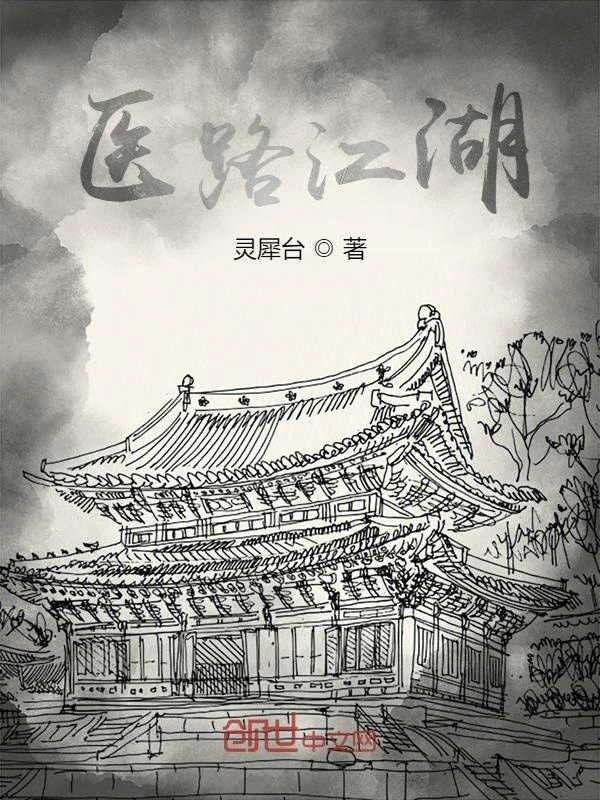 医路江湖
灵犀台 ◎ 著
创世中文网